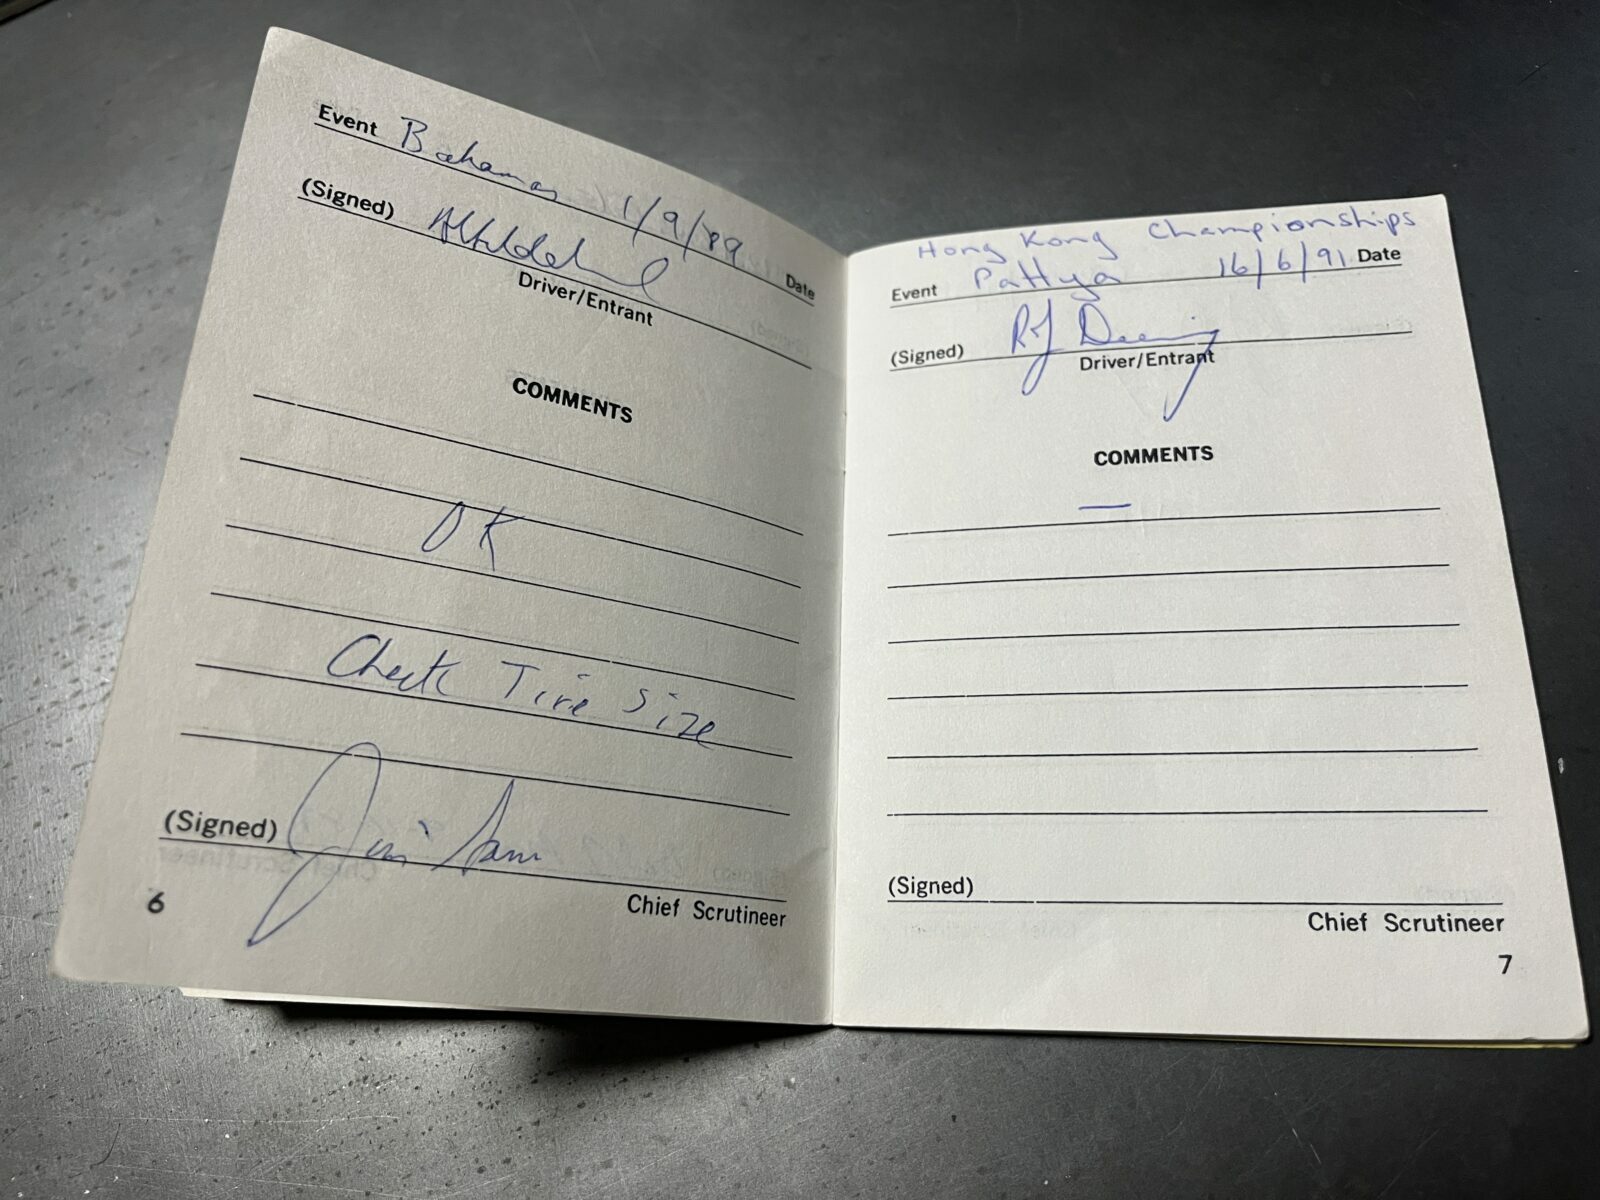 Event Bahamas 1/9/89 Date
(Signed)
Driver/Entrant
COMMENTS
OK
Check Tire Size
(Signed) Jim
Chief Scrutineer
6
Hong Kong Championships
Event Pattya 16/6/91 Date
(Signed) RJ Deering
Driver/Entrant
COMMENTS
—
(Signed)
Chief Scrutineer
7